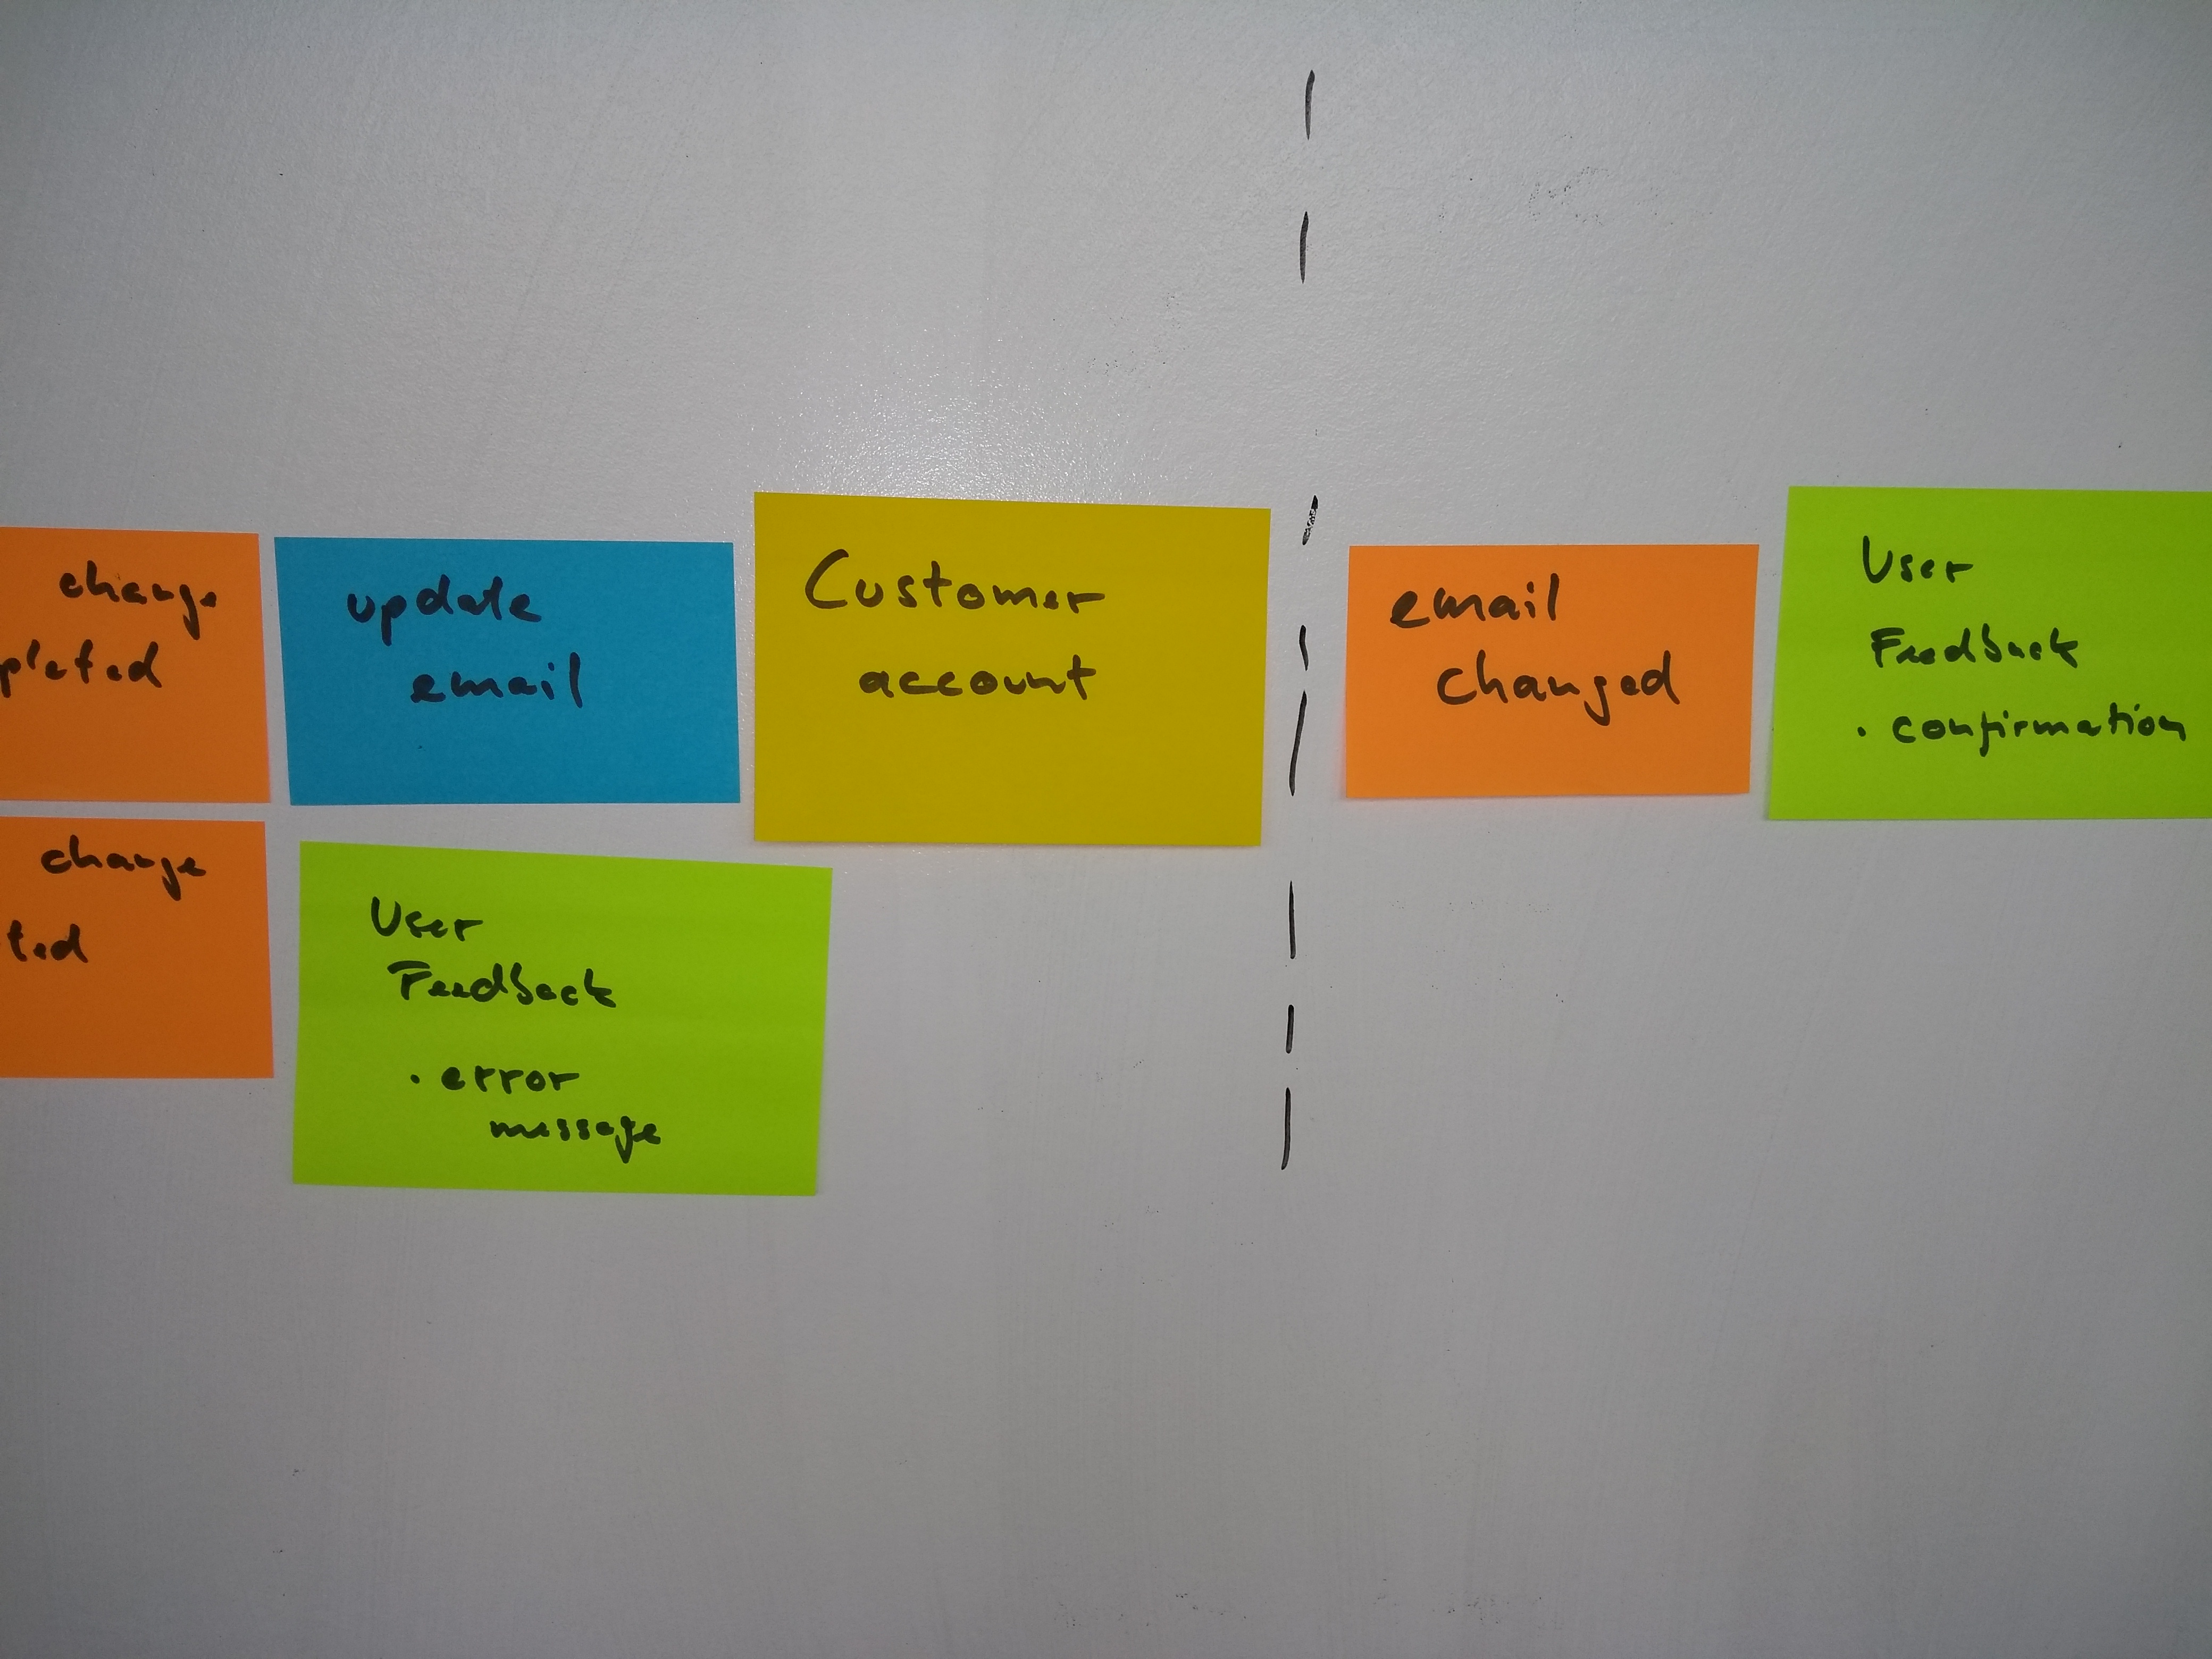 change
pleted
update
email
Customer
account
email
changed
User
Feedback
• confirmation
change
ted
User
Feedback
• error
message